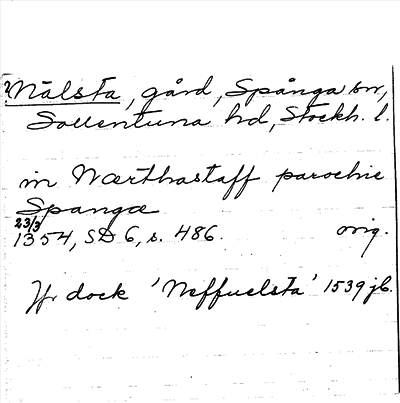 ?Nälsta, gård, Spånga sn,
Sollentuna hd, Stockh. l.
in Nærthastaff parochie
Spanga
23/3
1354, SD 6, s. 486. orig.
Jfr dock 'Neffuelsta' 1539 jb.